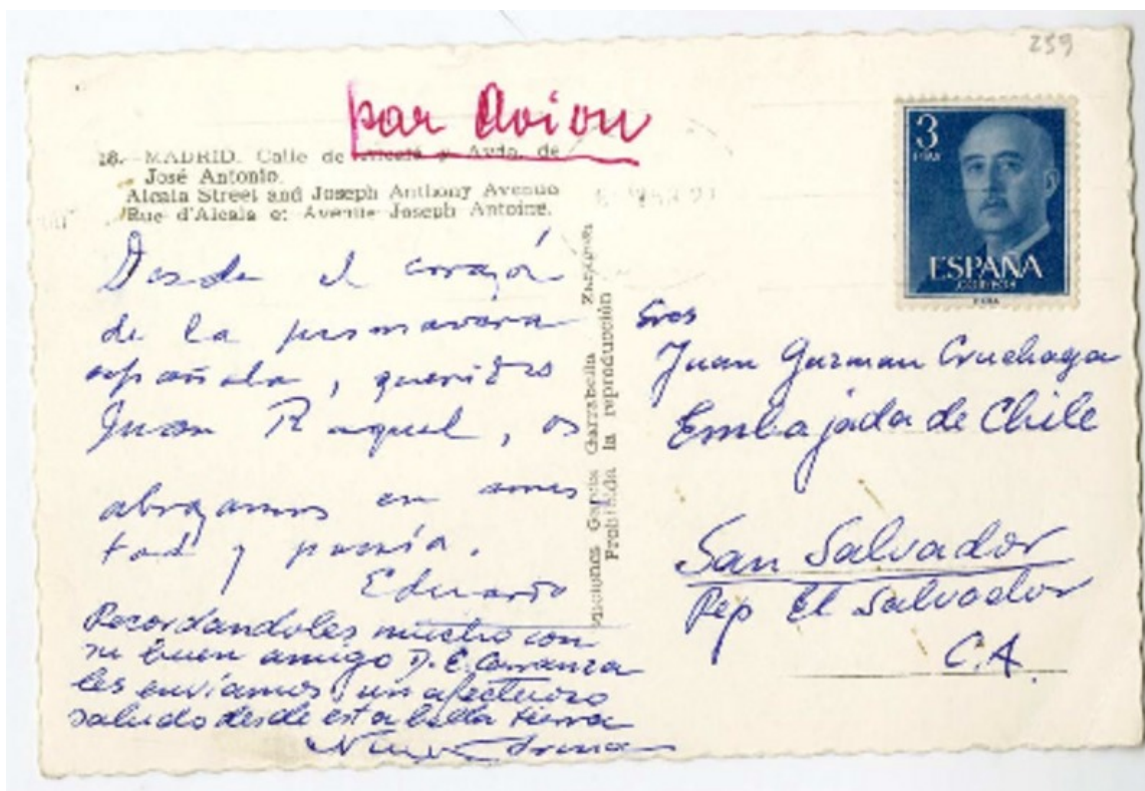 259
par Avion
18.- MADRID. Calle de Alcalá y Avda. de
José Antonio.
Alcala Street and Joseph Anthony Avenue
Rue d'Alcala et Avenue Joseph Antoine.
3
PTAS
ESPAÑA
CORREOS
Desde el corazón
de la primavera
española, queridos
Juan Raquel, os
abrazamos en amis
tad y poesía.
Eduardo
Recordandoles mucho con
su buen amigo D. E. Carranza
les enviamos un afectuoso
saludo desde esta bella tierra
Garcia Garrabella Zaragoza
Prohibida la reproducción
Sres
Juan Guzman Cruchaga
Embajada de Chile
San Salvador
Rep El Salvador
C.A.